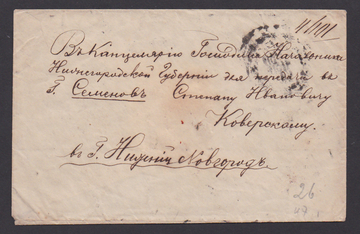 4/101
Въ Канцелярію Господина Начальника
Нижегородской Губерніи для передачи въ
г. Семеновъ Степану Ивановичу
Коверскому.
въ г. Нижній Новгородъ
26